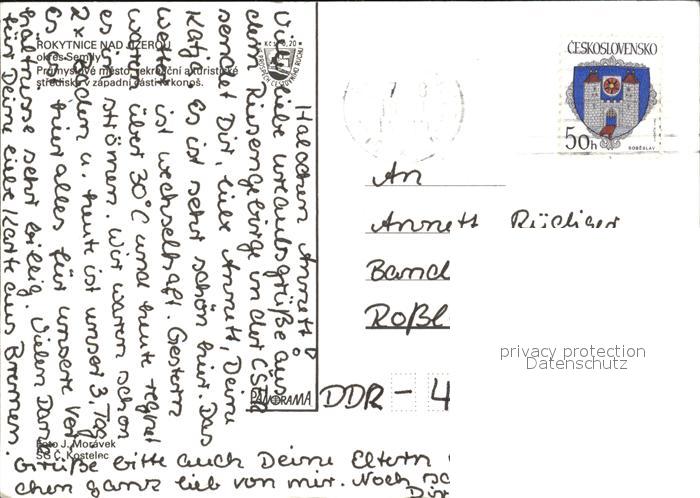 ROKYTNICE NAD JIZEROU
okres Semily
Průmyslové město, rekreační a turistické
středisko v západní části Krkonoš.
Kčs 1,20
ČESKOSLOVENSKO
50h
SOBĚSLAV
Hallöchen Annett!
Viele liebe Urlaubsgrüße aus
dem Riesengebirge in der ČSFR
sendet Dir, liebe Annett, Deine
Katja. Es ist sehr schön hier. Das
Wetter ist wechselhaft. Gestern
waren über 30°C und heute regnet
es in strömen. Wir waren schon
2x baden u. heute ist unser 3. Tag
Es ist hier alles für unsere Ver-
hältnisse sehr billig. Vielen Dank
für Deine liebe Karte aus Bremen.
Grüße bitte auch Deine Eltern
chen ganz lieb von mir. Noch
Dir
An
Annett Rüdiger
Band
Roßl
DDR - 4
PANORAMA
Foto J. Morávek
SG Č. Kostelec
privacy protection
Datenschutz